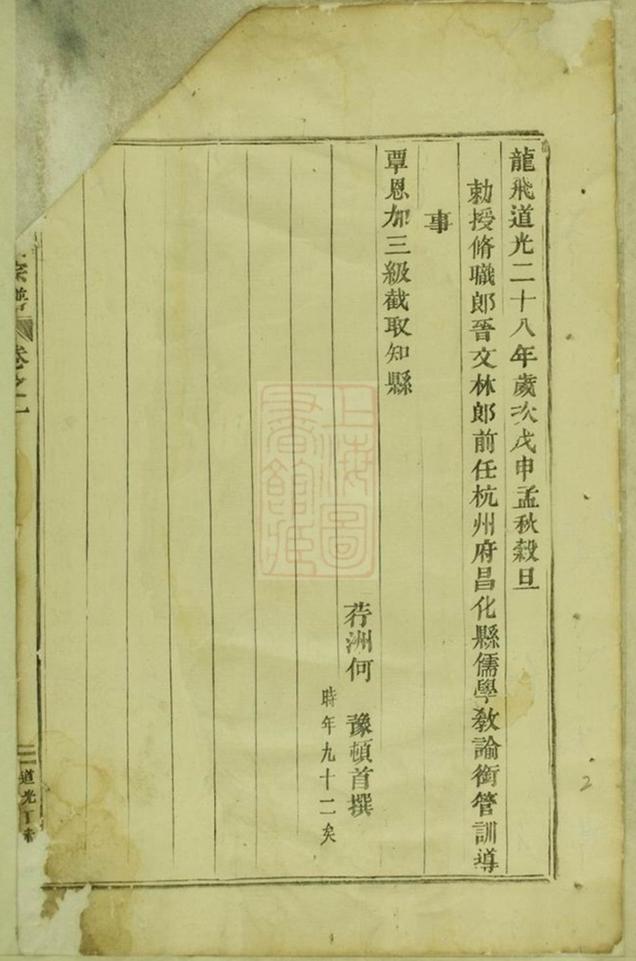 龍飛道光二十八年歲次戊申孟秋穀旦
勅授脩職郎晉文林郎前任杭州府昌化縣儒學教諭銜管訓導
事
覃恩加三級截取知縣
荇洲何 豫頓首撰
時年九十二矣
宗譜 卷之一
二 道光丁未
上海圖書館藏
2